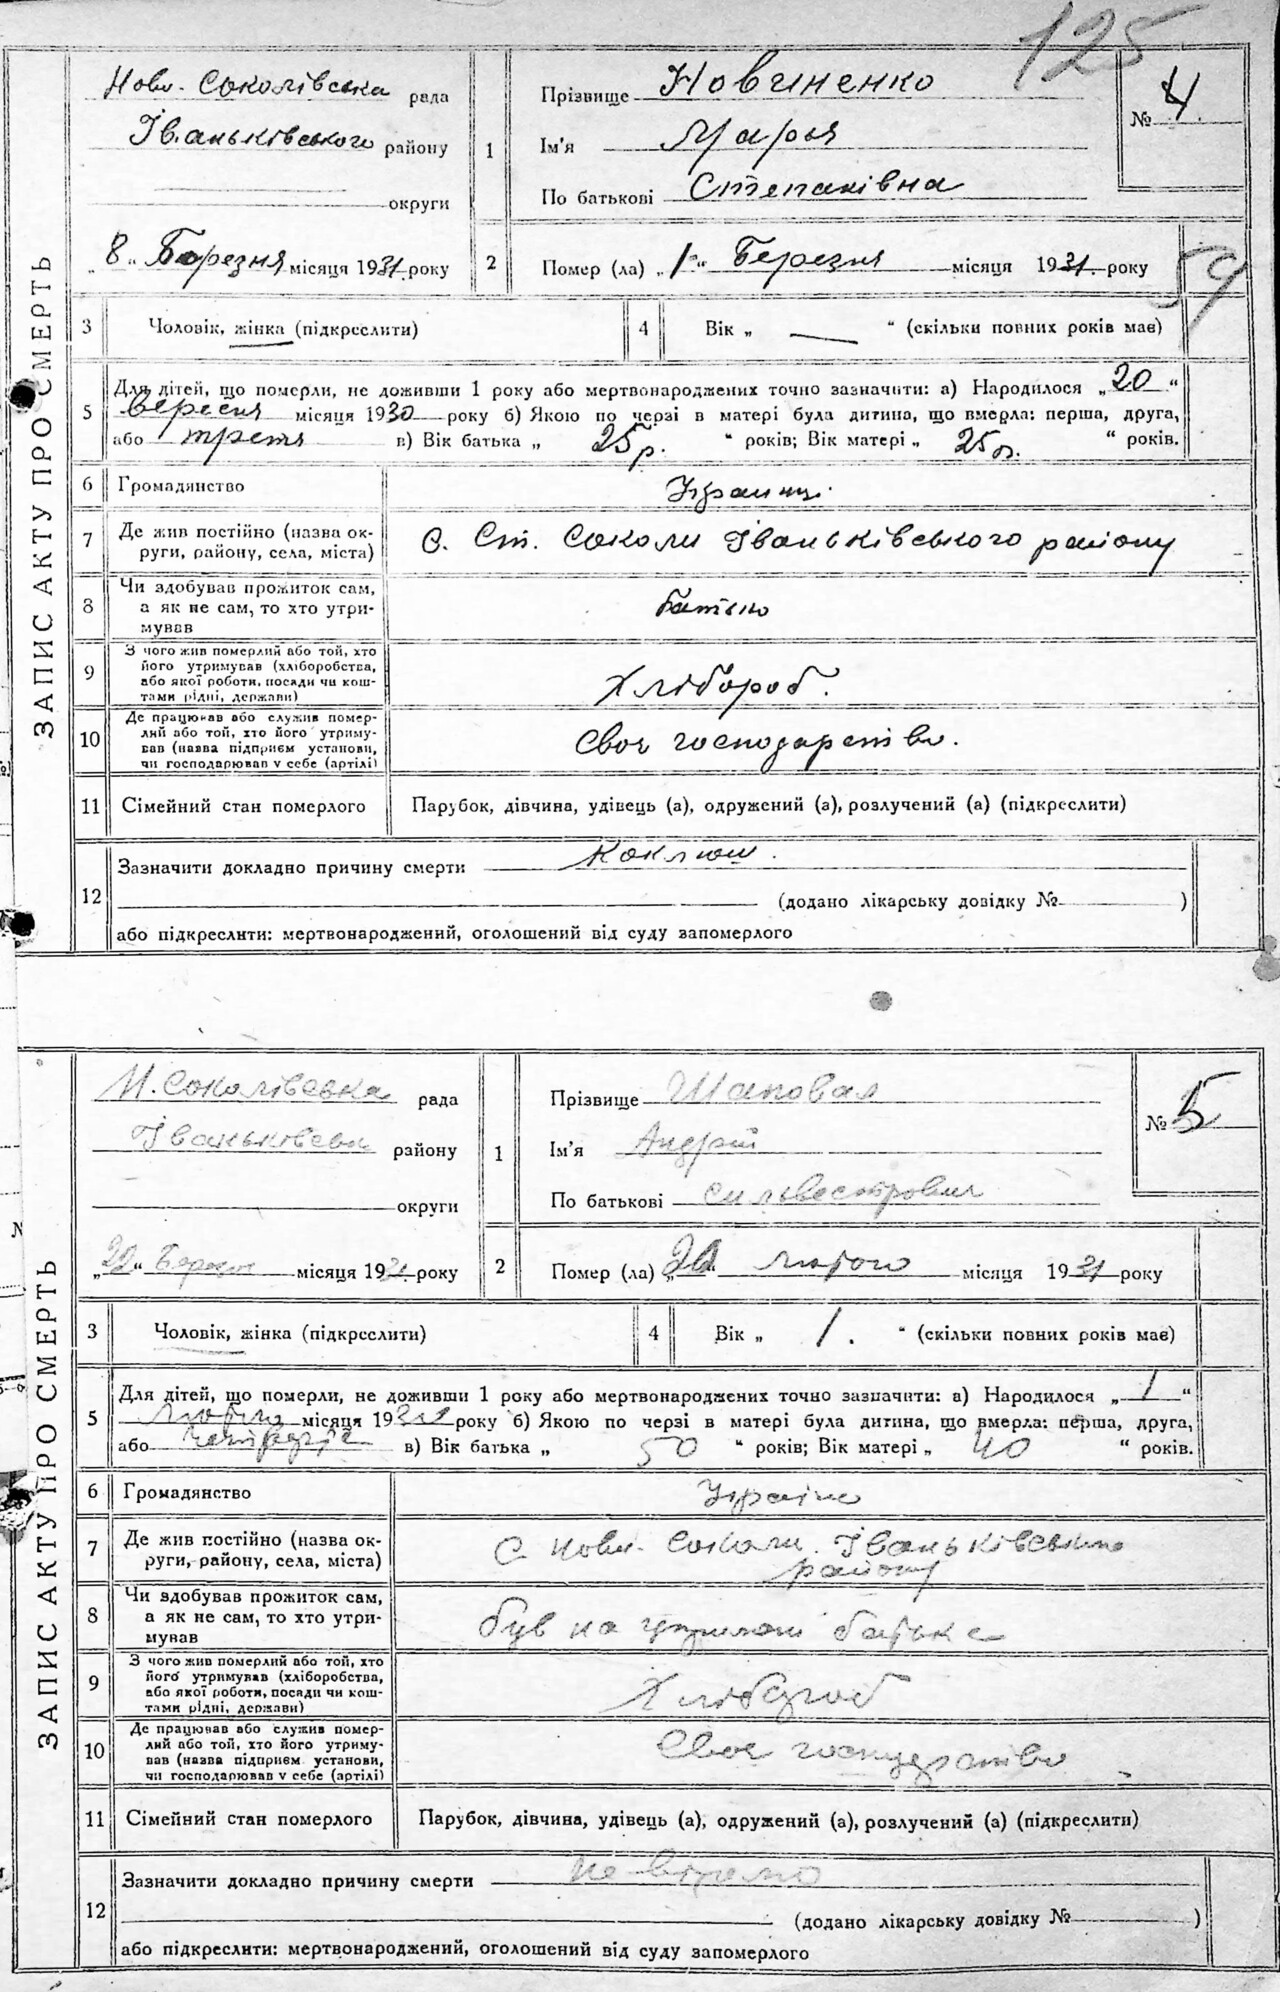 125
ЗАПИС АКТУ ПРО СМЕРТЬ
Нов. Соколівська рада
Іваньківського району
округи
„8“ Березня місяця 1931 року
1
Прізвище Новиненко
Ім'я Марья
По батькові Степанівна
№ 4
2
Помер (ла) „1“ Березня місяця 1931 року
59
3
Чоловік, жінка (підкреслити)
4
Вік „ — “ (скільки повних років має)
5
Для дітей, що померли, не доживши 1 року або мертвонароджених точно зазначити: а) Народилося „20“
Вересня місяця 1930 року б) Якою по черзі в матері була дитина, що вмерла: перша, друга,
або третя в) Вік батька „ 25р. “ років; Вік матері „ 25р. “ років.
6
Громадянство
7
Де жив постійно (назва ок-
руги, району, села, міста)
С. Ст. Соколи Іваньківського району
8
Чи здобував прожиток сам,
а як не сам, то хто утри-
мував
батько
9
З чого жив померлий або той, хто
його утримував (хліборобства,
або якої роботи, посади чи кош-
тами рідні, держави)
Хлібороб.
10
Де працював або служив помер-
лий або той, хто його утриму-
вав (назва підприєм установи,
чи господарював у себе (артілі)
Своє господарство.
11
Сімейний стан померлого
Парубок, дівчина, удівець (а), одружений (а), розлучений (а) (підкреслити)
12
Зазначити докладно причину смерти Коклюш.
(додано лікарську довідку № )
або підкреслити: мертвонароджений, оголошений від суду запомерлого
ЗАПИС АКТУ ПРО СМЕРТЬ
Н. Соколівська рада
району
округи
Березня місяця 1931 року
1
Прізвище Шаповал
Ім'я Андрій
По батькові Сильвестрович
№ 5
2
Помер (ла) лютого місяця 1931 року
3
Чоловік, жінка (підкреслити)
4
Вік „ 1. “ (скільки повних років має)
5
Для дітей, що померли, не доживши 1 року або мертвонароджених точно зазначити: а) Народилося „1“
місяця 19 року б) Якою по черзі в матері була дитина, що вмерла: перша, друга,
або в) Вік батька „ 50 “ років; Вік матері „ 40 “ років.
6
Громадянство
7
Де жив постійно (назва ок-
руги, району, села, міста)
С. Нов. Соколи. Іваньківського
району
8
Чи здобував прожиток сам,
а як не сам, то хто утри-
мував
був на батька
9
З чого жив померлий або той, хто
його утримував (хліборобства,
або якої роботи, посади чи кош-
тами рідні, держави)
Хлібороб
10
Де працював або служив помер-
лий або той, хто його утриму-
вав (назва підприєм установи,
чи господарював у себе (артілі)
Своє господарство
11
Сімейний стан померлого
Парубок, дівчина, удівець (а), одружений (а), розлучений (а) (підкреслити)
12
Зазначити докладно причину смерти не відомо
(додано лікарську довідку № )
або підкреслити: мертвонароджений, оголошений від суду запомерлого